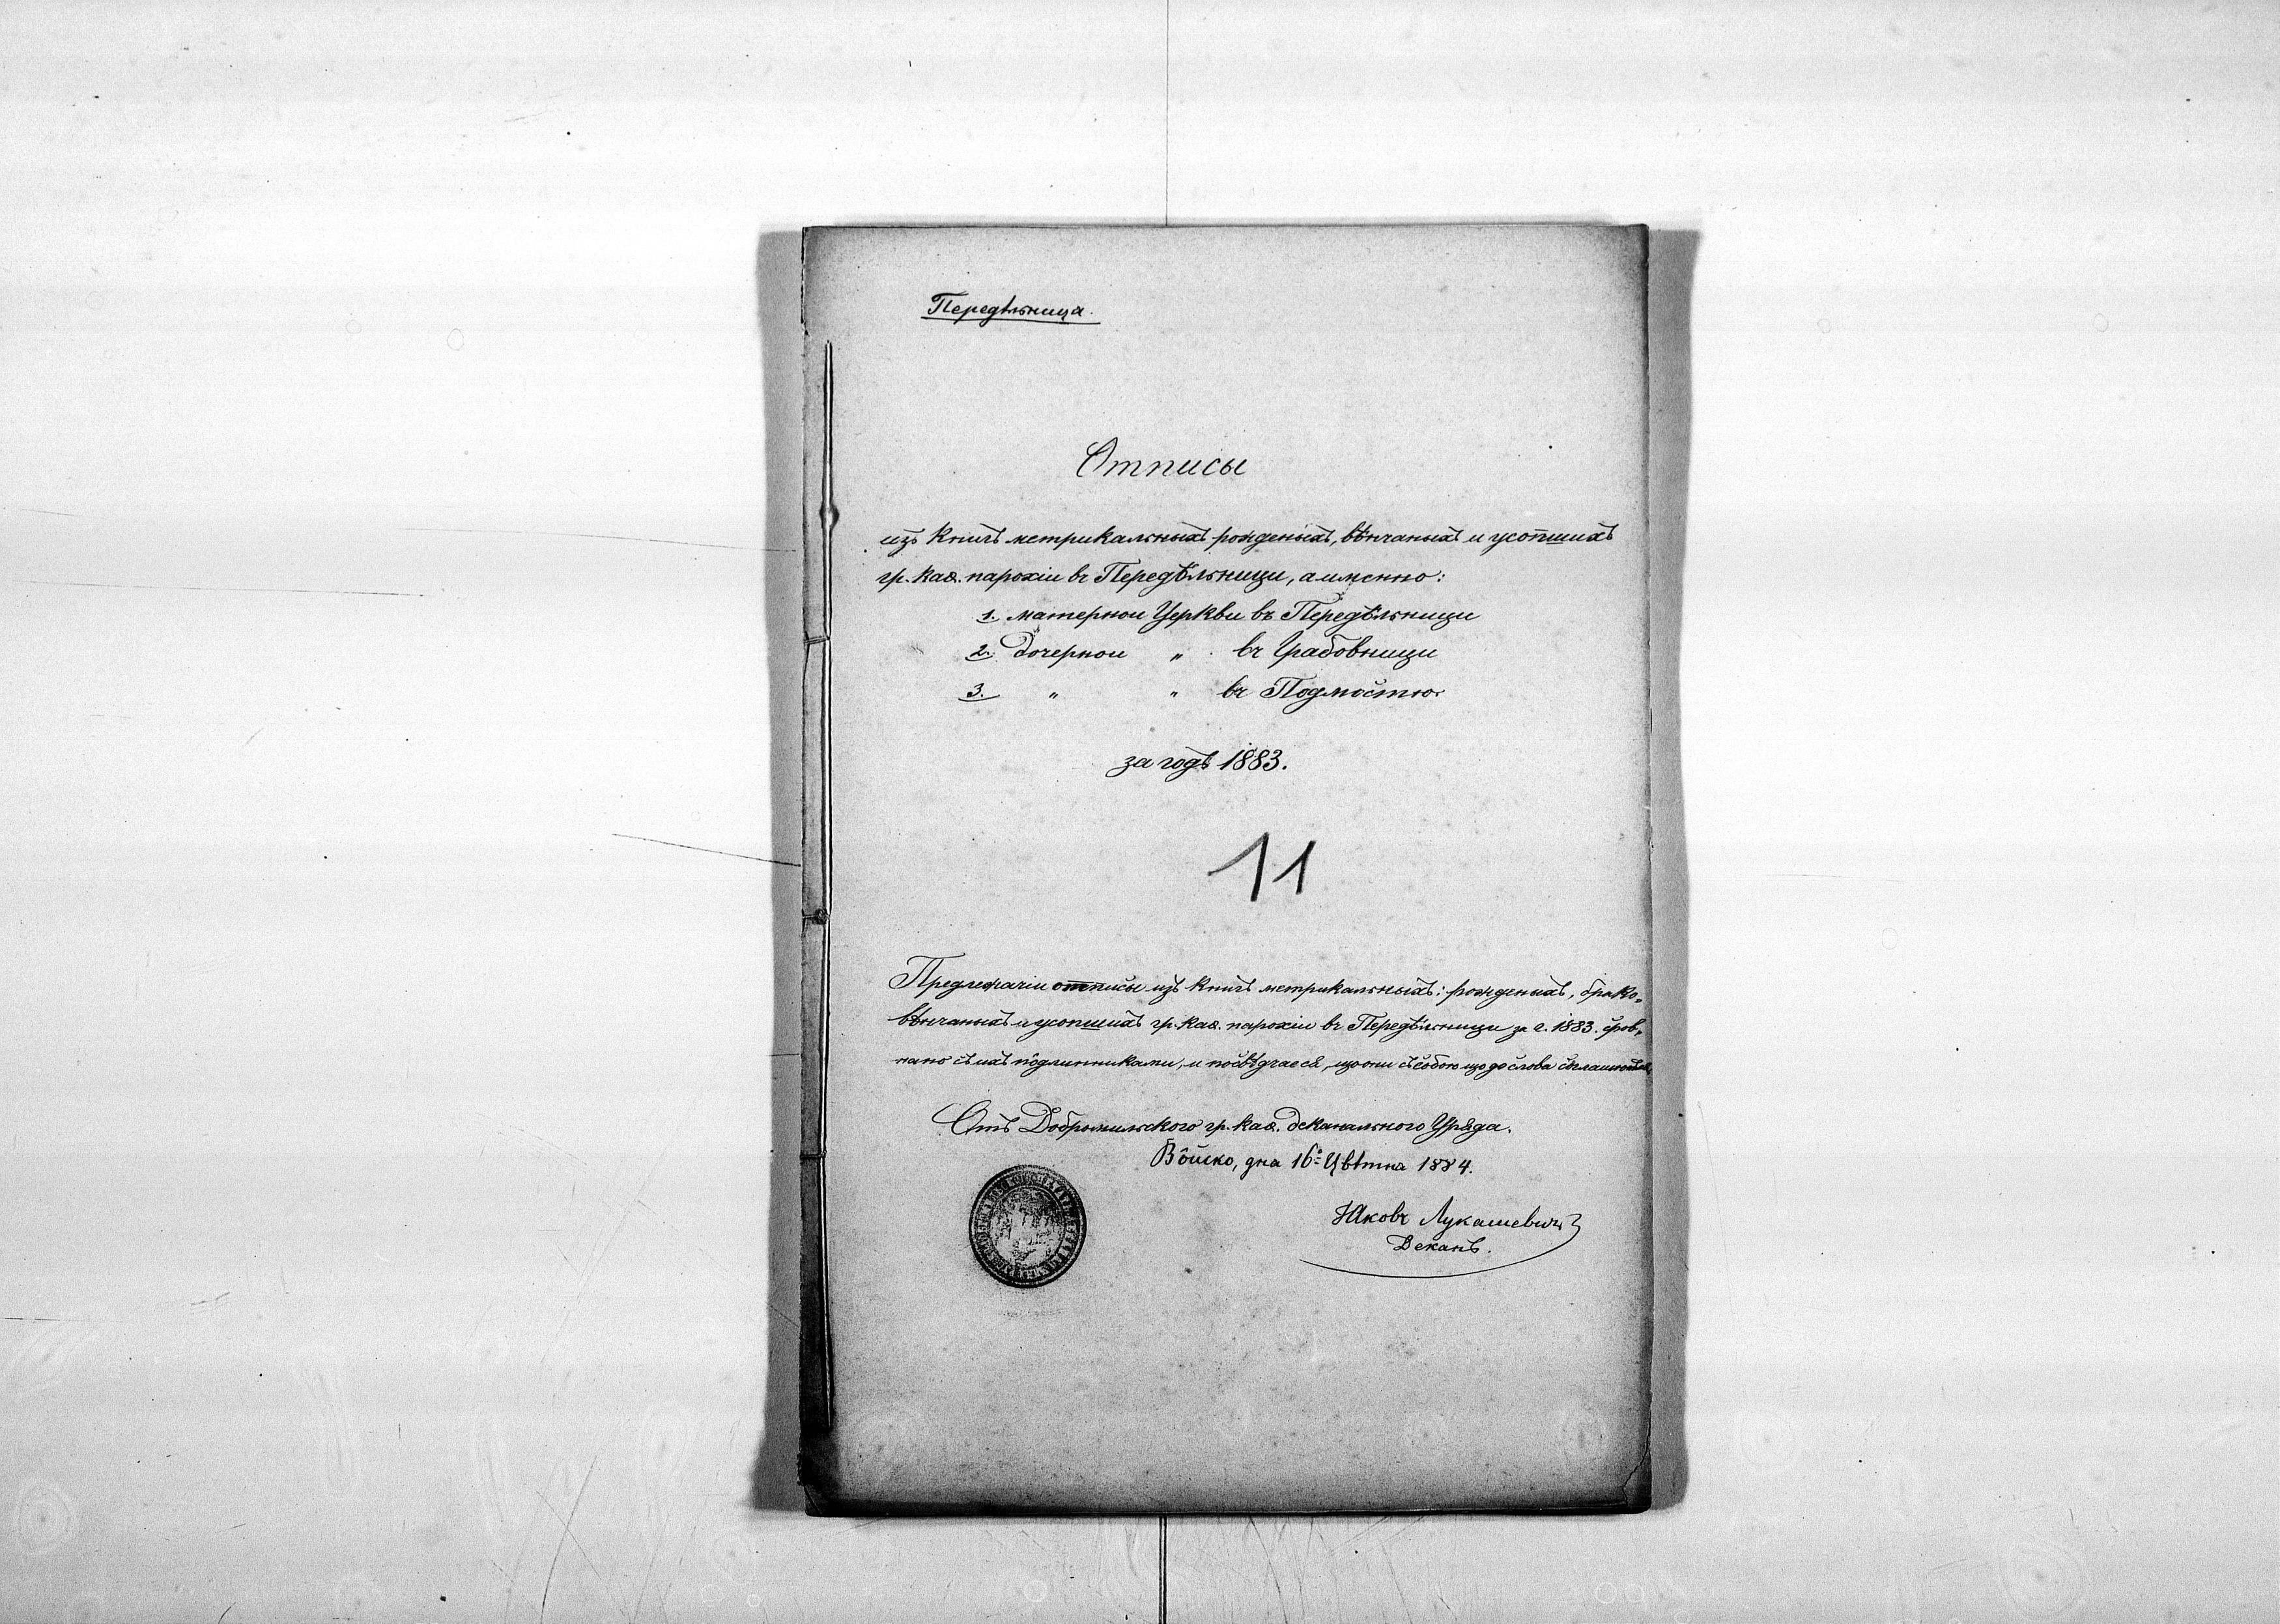 Передѣльница.
Отписы
изъ книгъ метрикальныхъ рожденыхъ, вѣнчаныхъ и усопшихъ
гр. каѳ. парохіи въ Передѣльници, а именно:
1. матерной Церкви въ Передѣльници
2. дочерной „ въ Грабовници
3. „ „ въ Подмостю.
за годъ 1883.
11
Предлежачіи отписы изъ книгъ метрикальныхъ: рожденыхъ, брако-
вѣнчаныхъ и усопшихъ гр. каѳ. парохіи въ Передѣльници за г. 1883. сров-
нано съ ихъ подлинниками, и посвѣдчаеся, що они съ собою що до слова
Отъ Добромильского гр. каѳ. деканального Уряда.
Вôйско, дня 16. Цвѣтня 1884.
Яковъ Лукашевичъ
Деканъ.